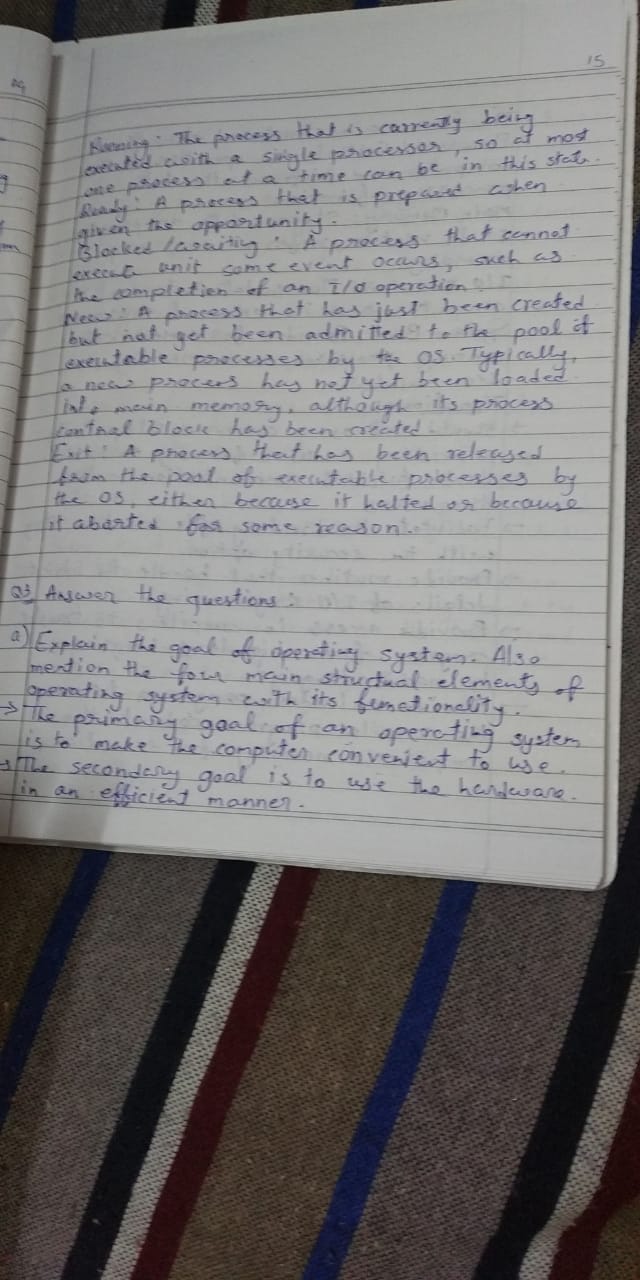 15
Running: The process that is currently being
executed with a single processor, so at most
one process at a time can be in this state.
Ready: A process that is prepared when
given the opportunity.
Blocked/waiting: A process that cannot
execute unit some event occurs, such as
the completion of an I/O operation
New: A process that has just been created
but not get been admitted to the pool of
executable processes by the OS. Typically,
a new process has not yet been loaded
into main memory, although its process
control block has been created.
Exit: A process that has been released
from the pool of executable processes by
the OS, either because it halted or because
it aborted for some reason.
Q3 Answer the questions:
a) Explain the goal of operating system. Also
mention the four main structual elements of
operating system with its functionality.
→ The primary goal of an operating system
is to make the computer convenient to use.
→ The secondary goal is to use the hardware
in an efficient manner.